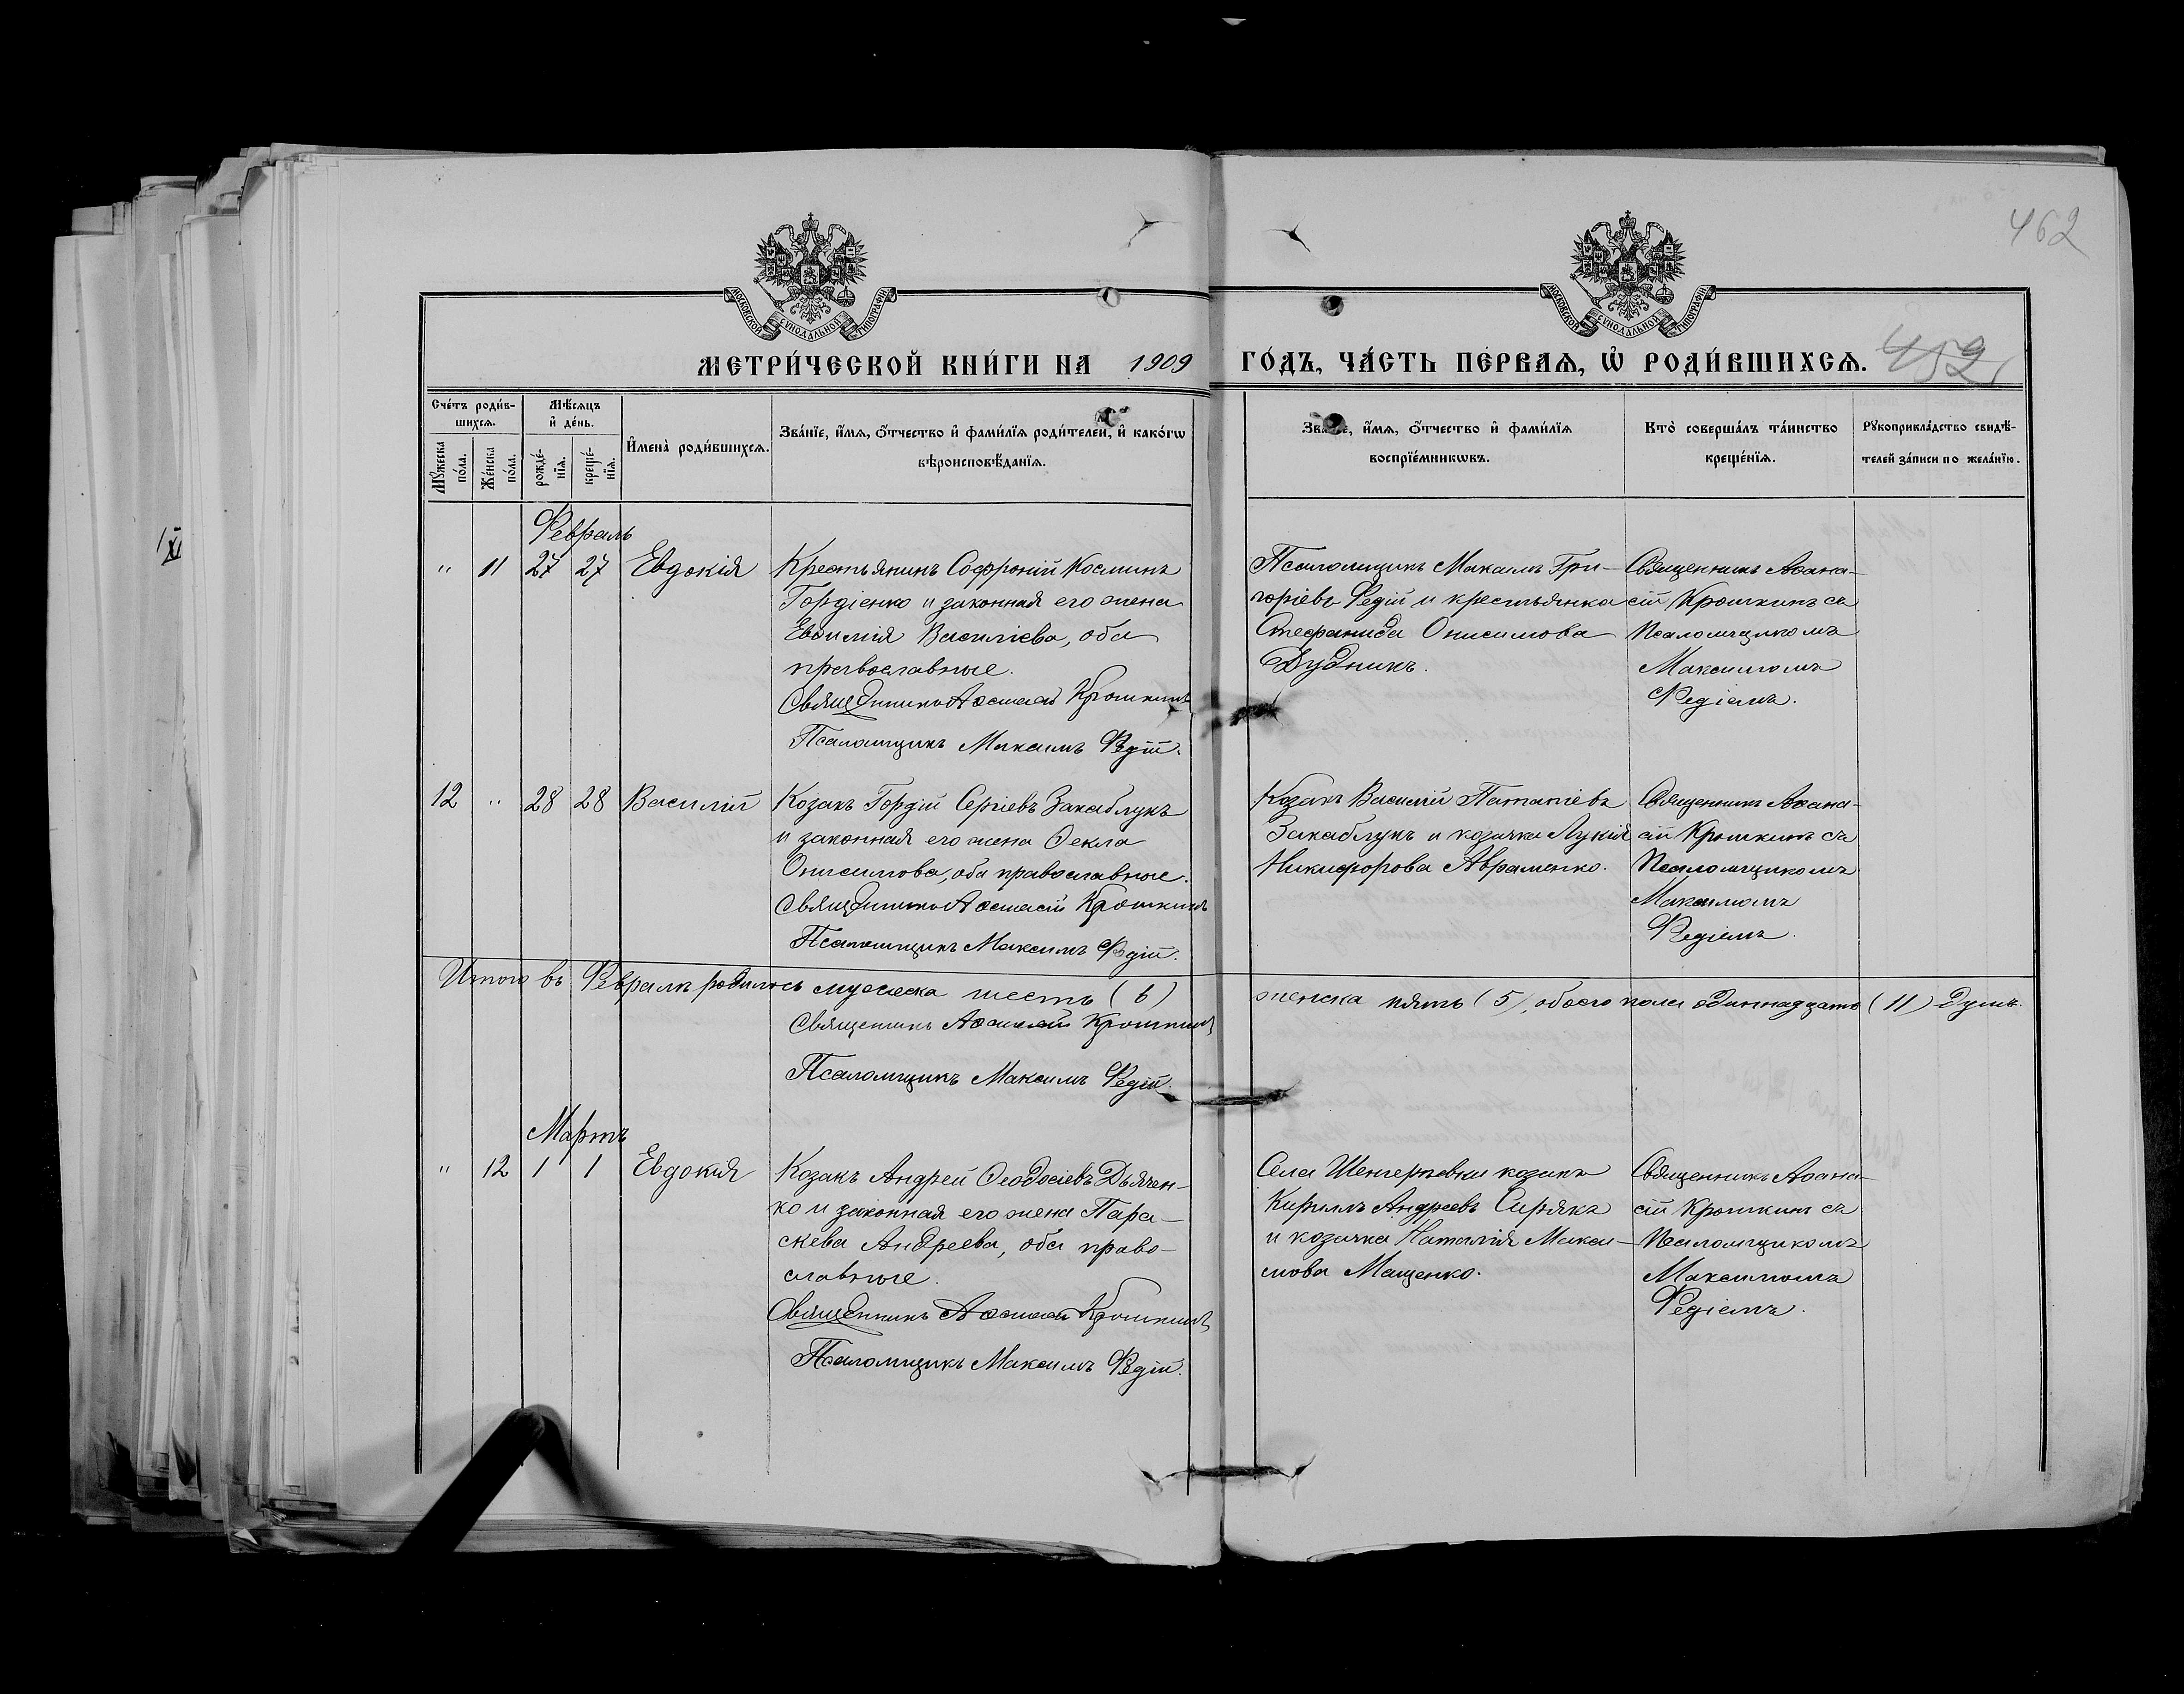 462
МОСКОВСКОЙ СѴНОДАЛЬНОЙ ТИПОГРАФІИ
МОСКОВСКОЙ СѴНОДАЛЬНОЙ ТИПОГРАФІИ
МЕТРИ́ЧЕСКОЙ КНИ́ГИ НА 1909 ГО́ДЪ, ЧА́СТЬ ПЕ́РВАѦ, Ѽ РОДИ́ВШИХСѦ. 452
Сче́тъ роди́в-
шихсѧ.
Мꙋ́жеска по́ла.
Же́нска по́ла.
Мѣ́сѧцъ
и҆ де́нь.
рожде́-
нїѧ.
креще́-
нїѧ.
И҆мена̀ роди́вшихсѧ.
Зва́нїе, и҆́мѧ, ѻ҆́тчество и҆ фами́лїѧ роди́телей, и҆ како́гѡ
вѣроисповѣ́данїѧ.
Зва́нїе, и҆́мѧ, ѻ҆́тчество и҆ фами́лїѧ
воспрїе́мникѡвъ.
Кто̀ соверша́лъ та́инство
креще́нїѧ.
Рꙋкоприкла́дство свидѣ́-
телей за́писи по жела́нїю.
Февраль
" 11 27 27 Евдокія
Крестьянинъ Софроній Косминъ
Гордіенко и законная его жена
Евѳимія Василіева, оба
православные.
Священникъ Аѳанасій Крошкинъ
Псаломщикъ Максимъ Редій.
Псаломщикъ Максимъ Гри-
горіевъ Редій и крестьянка
Стефанида Онисимова
Дудникъ.
Священникъ Аѳана-
сій Крошкинъ съ
Псаломщикомъ
Максимомъ
Редіемъ.
12 " 28 28 Василій
Козакъ Гордій Сергіевъ Закаблукъ
и законная его жена Ѳекла
Онисимова, оба православные.
Священникъ Аѳанасій Крошкинъ
Псаломщикъ Максимъ Редій.
Козакъ Василій Патапіевъ
Закаблукъ и козачка Лукія
Никифорова Авраменко.
Священникъ Аѳана-
сій Крошкинъ съ
Псаломщикомъ
Максимомъ
Редіемъ.
Итого въ Февралѣ родилось мужеска шесть (6) женска пять (5), обоего пола одиннадцать (11) душъ.
Священникъ Аѳанасій Крошкинъ
Псаломщикъ Максимъ Редій.
Мартъ
" 12 1 1 Евдокія
Козакъ Андрей Ѳеодосіевъ Дьячен-
ко и законная его жена Пара-
скева Андреева, оба право-
славные.
Священникъ Аѳанасій Крошкинъ
Псаломщикъ Максимъ Редій.
Села козакъ
Кириллъ Андреевъ Сирякъ
и козачка Наталія Макси-
мова Мащенко.
Священникъ Аѳана-
сій Крошкинъ съ
Псаломщикомъ
Максимомъ
Редіемъ.